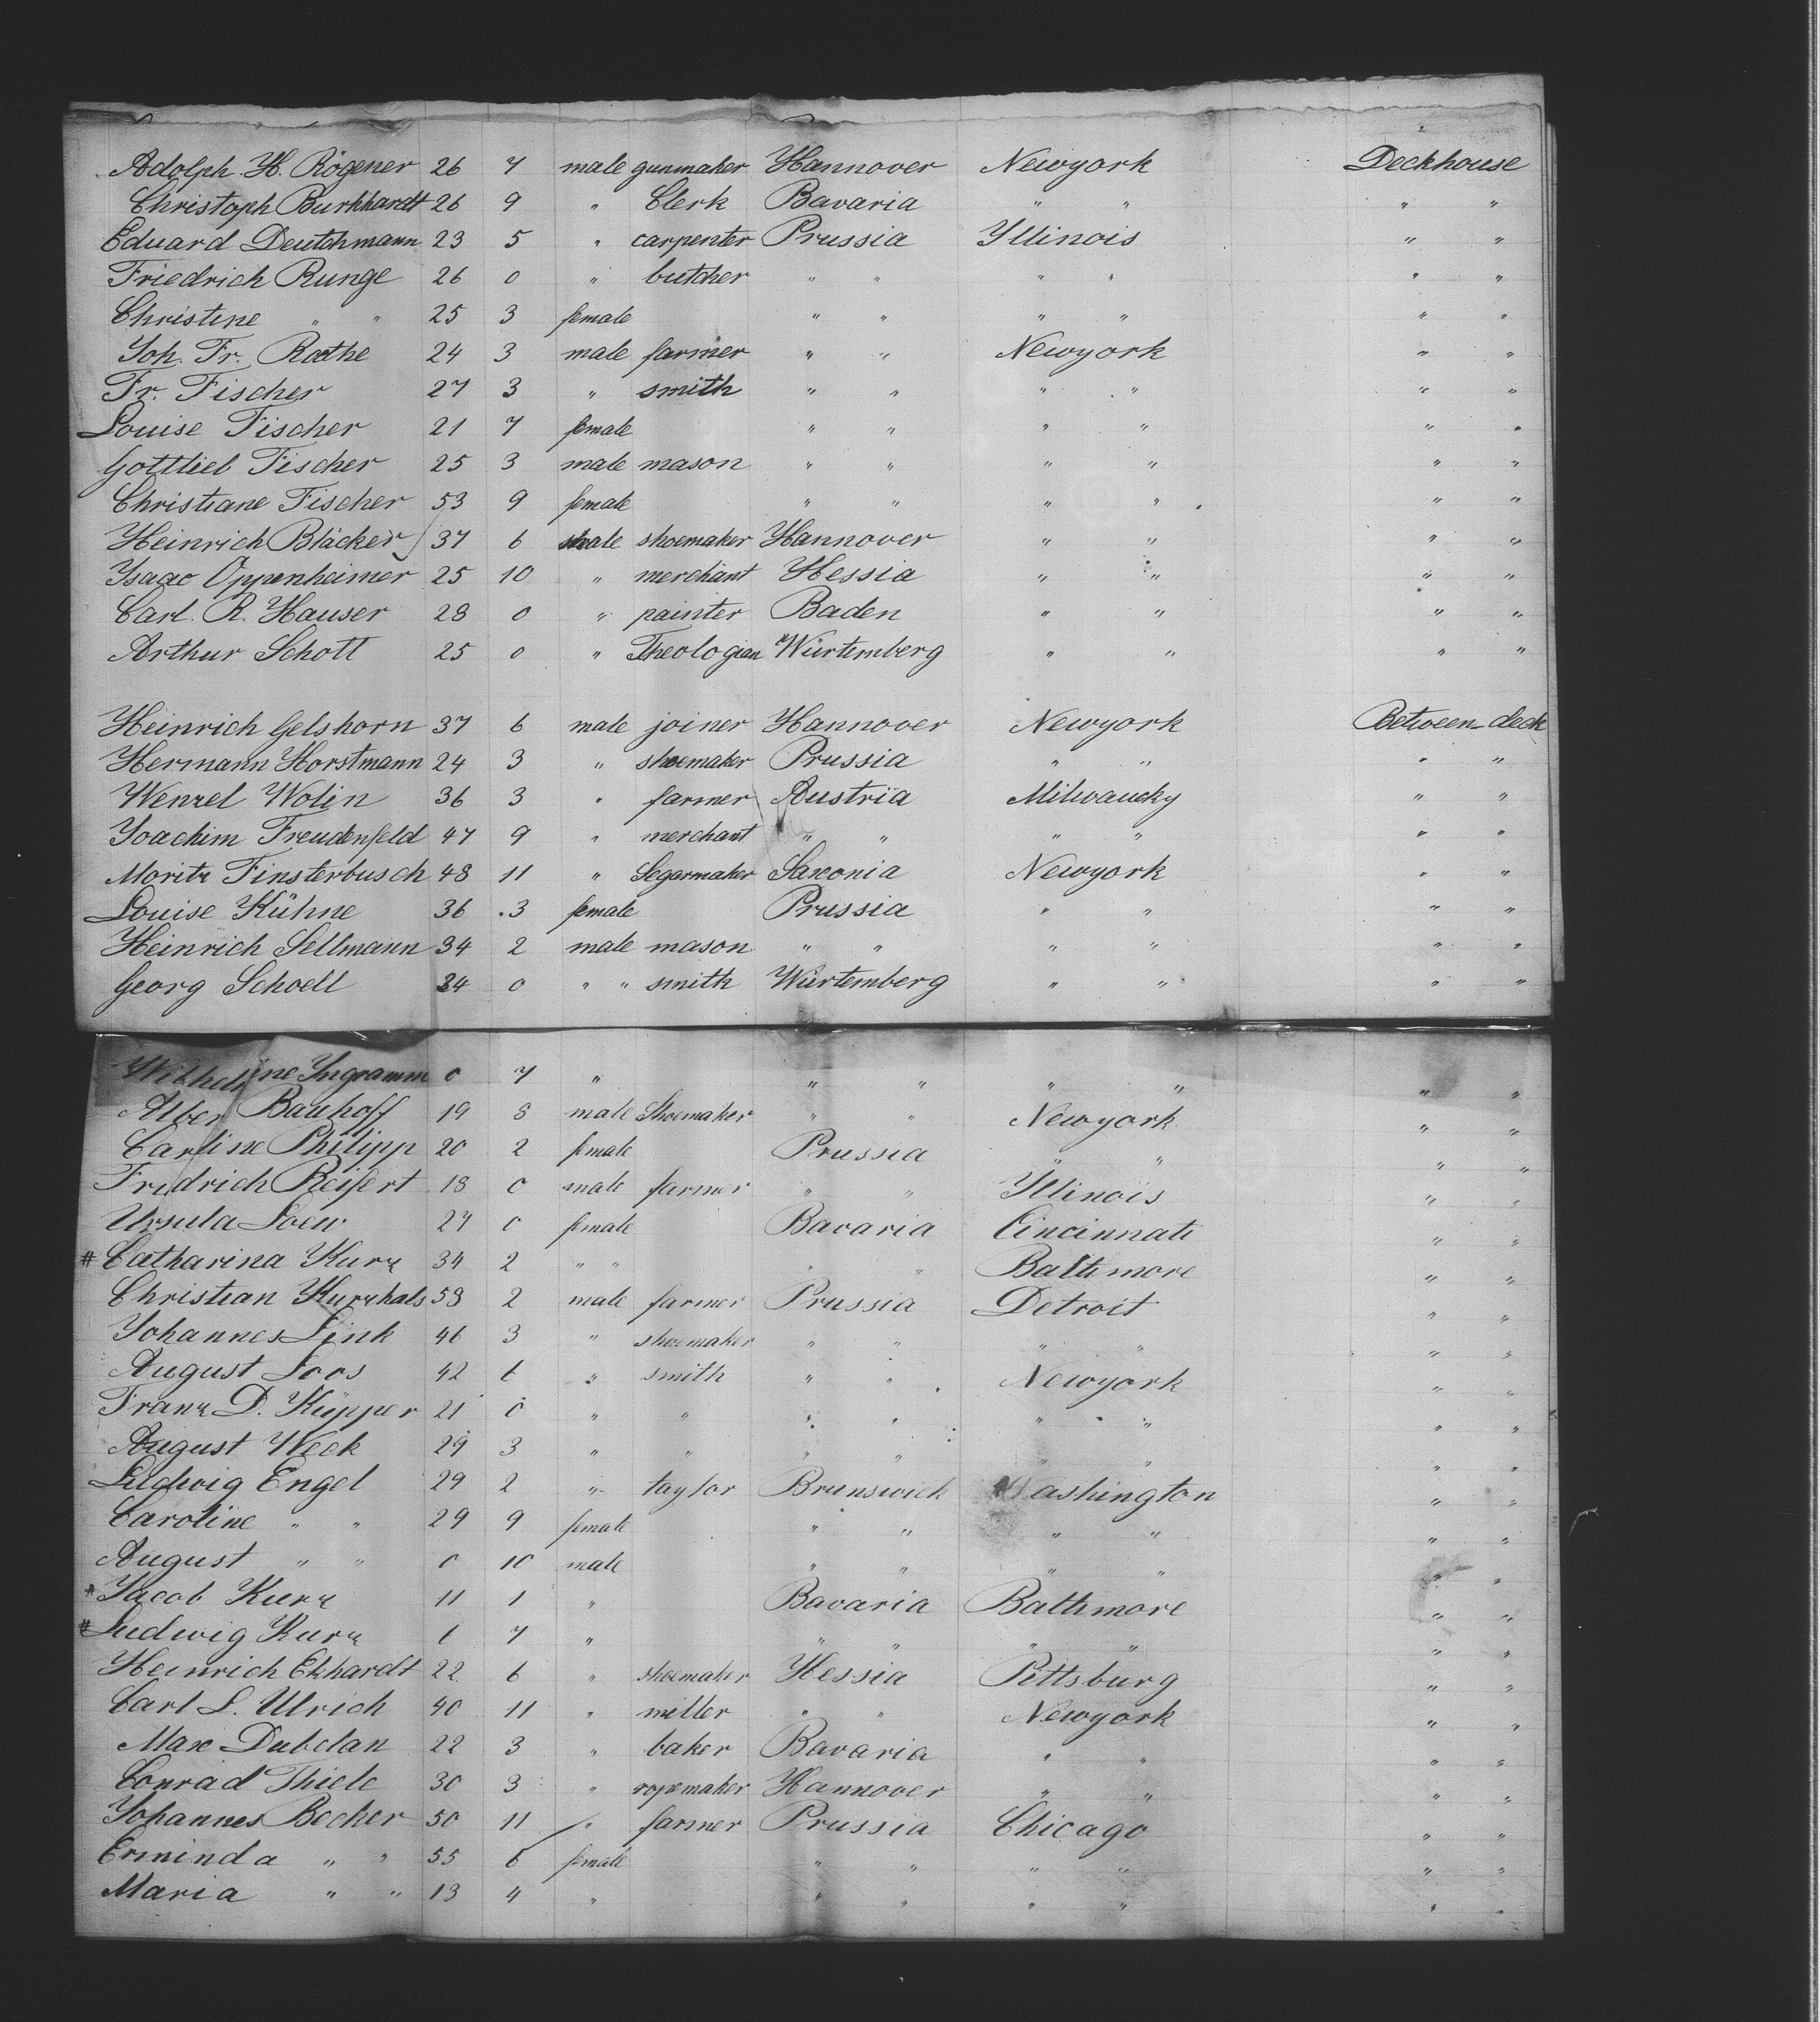 Adolph H. Rögener 26 7 male gunmaker Hannover Newyork Deckhouse
Christoph Burkhardt 26 9 " Clerk Bavaria " " " "
Eduard Deutchmann 23 5 " carpenter Prussia Yllinois " "
Friedrich Runge 26 0 " butcher " " " " " "
Christine " " 25 3 female " " " " " "
Joh. Fr. Rathe 24 3 male farmer " " Newyork " "
Fr. Fischer 27 3 " smith " " " " " "
Louise Fischer 21 7 female " " " " " "
Gottlieb Fischer 25 3 male mason " " " " " "
Christiane Fischer 53 9 female " " " " " "
Heinrich Bläcker 37 6 male shoemaker Hannover " " " "
Ysaac Oppenheimer 25 10 " merchant Hessia " " " "
Carl R. Hauser 28 0 " painter Baden " " " "
Arthur Schott 25 0 " Theologian Würtemberg " " " "
Heinrich Gelshorn 37 6 male joiner Hannover Newyork Between-deck
Hermann Horstmann 24 3 " shoemaker Prussia " " " "
Wenzel Wolin 36 3 " farmer Austria Milwaucky " "
Joachim Freudenfeld 47 9 " merchant " " " " " "
Moritz Finsterbusch 48 11 " Segarmaker Saxonia Newyork " "
Louise Kühne 36 3 female Prussia " " " "
Heinrich Sellmann 34 2 male mason " " " " " "
Georg Schoell 34 0 " " smith Würtemberg " " " "
Wilhelmine Yngramm 0 7 " " " " " " "
Alber Bauhoff 19 8 male Shoemaker " " Newyork " "
Carline Philipp 20 2 female Prussia " " " "
Fredrich Reifert 18 0 male farmer " " Yllinois " "
Ursula Loew 27 0 female Bavaria Cincinnati " "
# Catharina Kurz 34 2 " " " " Baltimore " "
Christian Kurzhals 58 2 male farmer Prussia Detroit " "
Johannes Link 46 3 " shoemaker " " " " " "
August Loos 42 6 " smith " " Newyork " "
Franz D. Küpper 21 0 " " " " " " " "
August Week 29 3 " " " " " " " "
Ludwig Engel 29 2 " taylor Brunswick Washington " "
Caroline " " 29 9 female " " " " " "
August " " 0 10 male " " " " " "
# Jacob Kurz 11 1 " Bavaria Baltimore " "
# Ludwig Kurz 6 7 " " " " " " "
Heinrich Ekhardt 22 6 " shoemaker Hessia Pittsburg " "
Carl L. Ulrich 40 11 " miller " " Newyork " "
Max Dubelan 22 3 " baker Bavaria " " " "
Conrad Thiele 30 3 " ropemaker Hannover " " " "
Johannes Becher 50 11 " farmer Prussia Chicago " "
Erminda " " 55 6 female " " " " " "
Maria " " 13 4 " " " " " " "